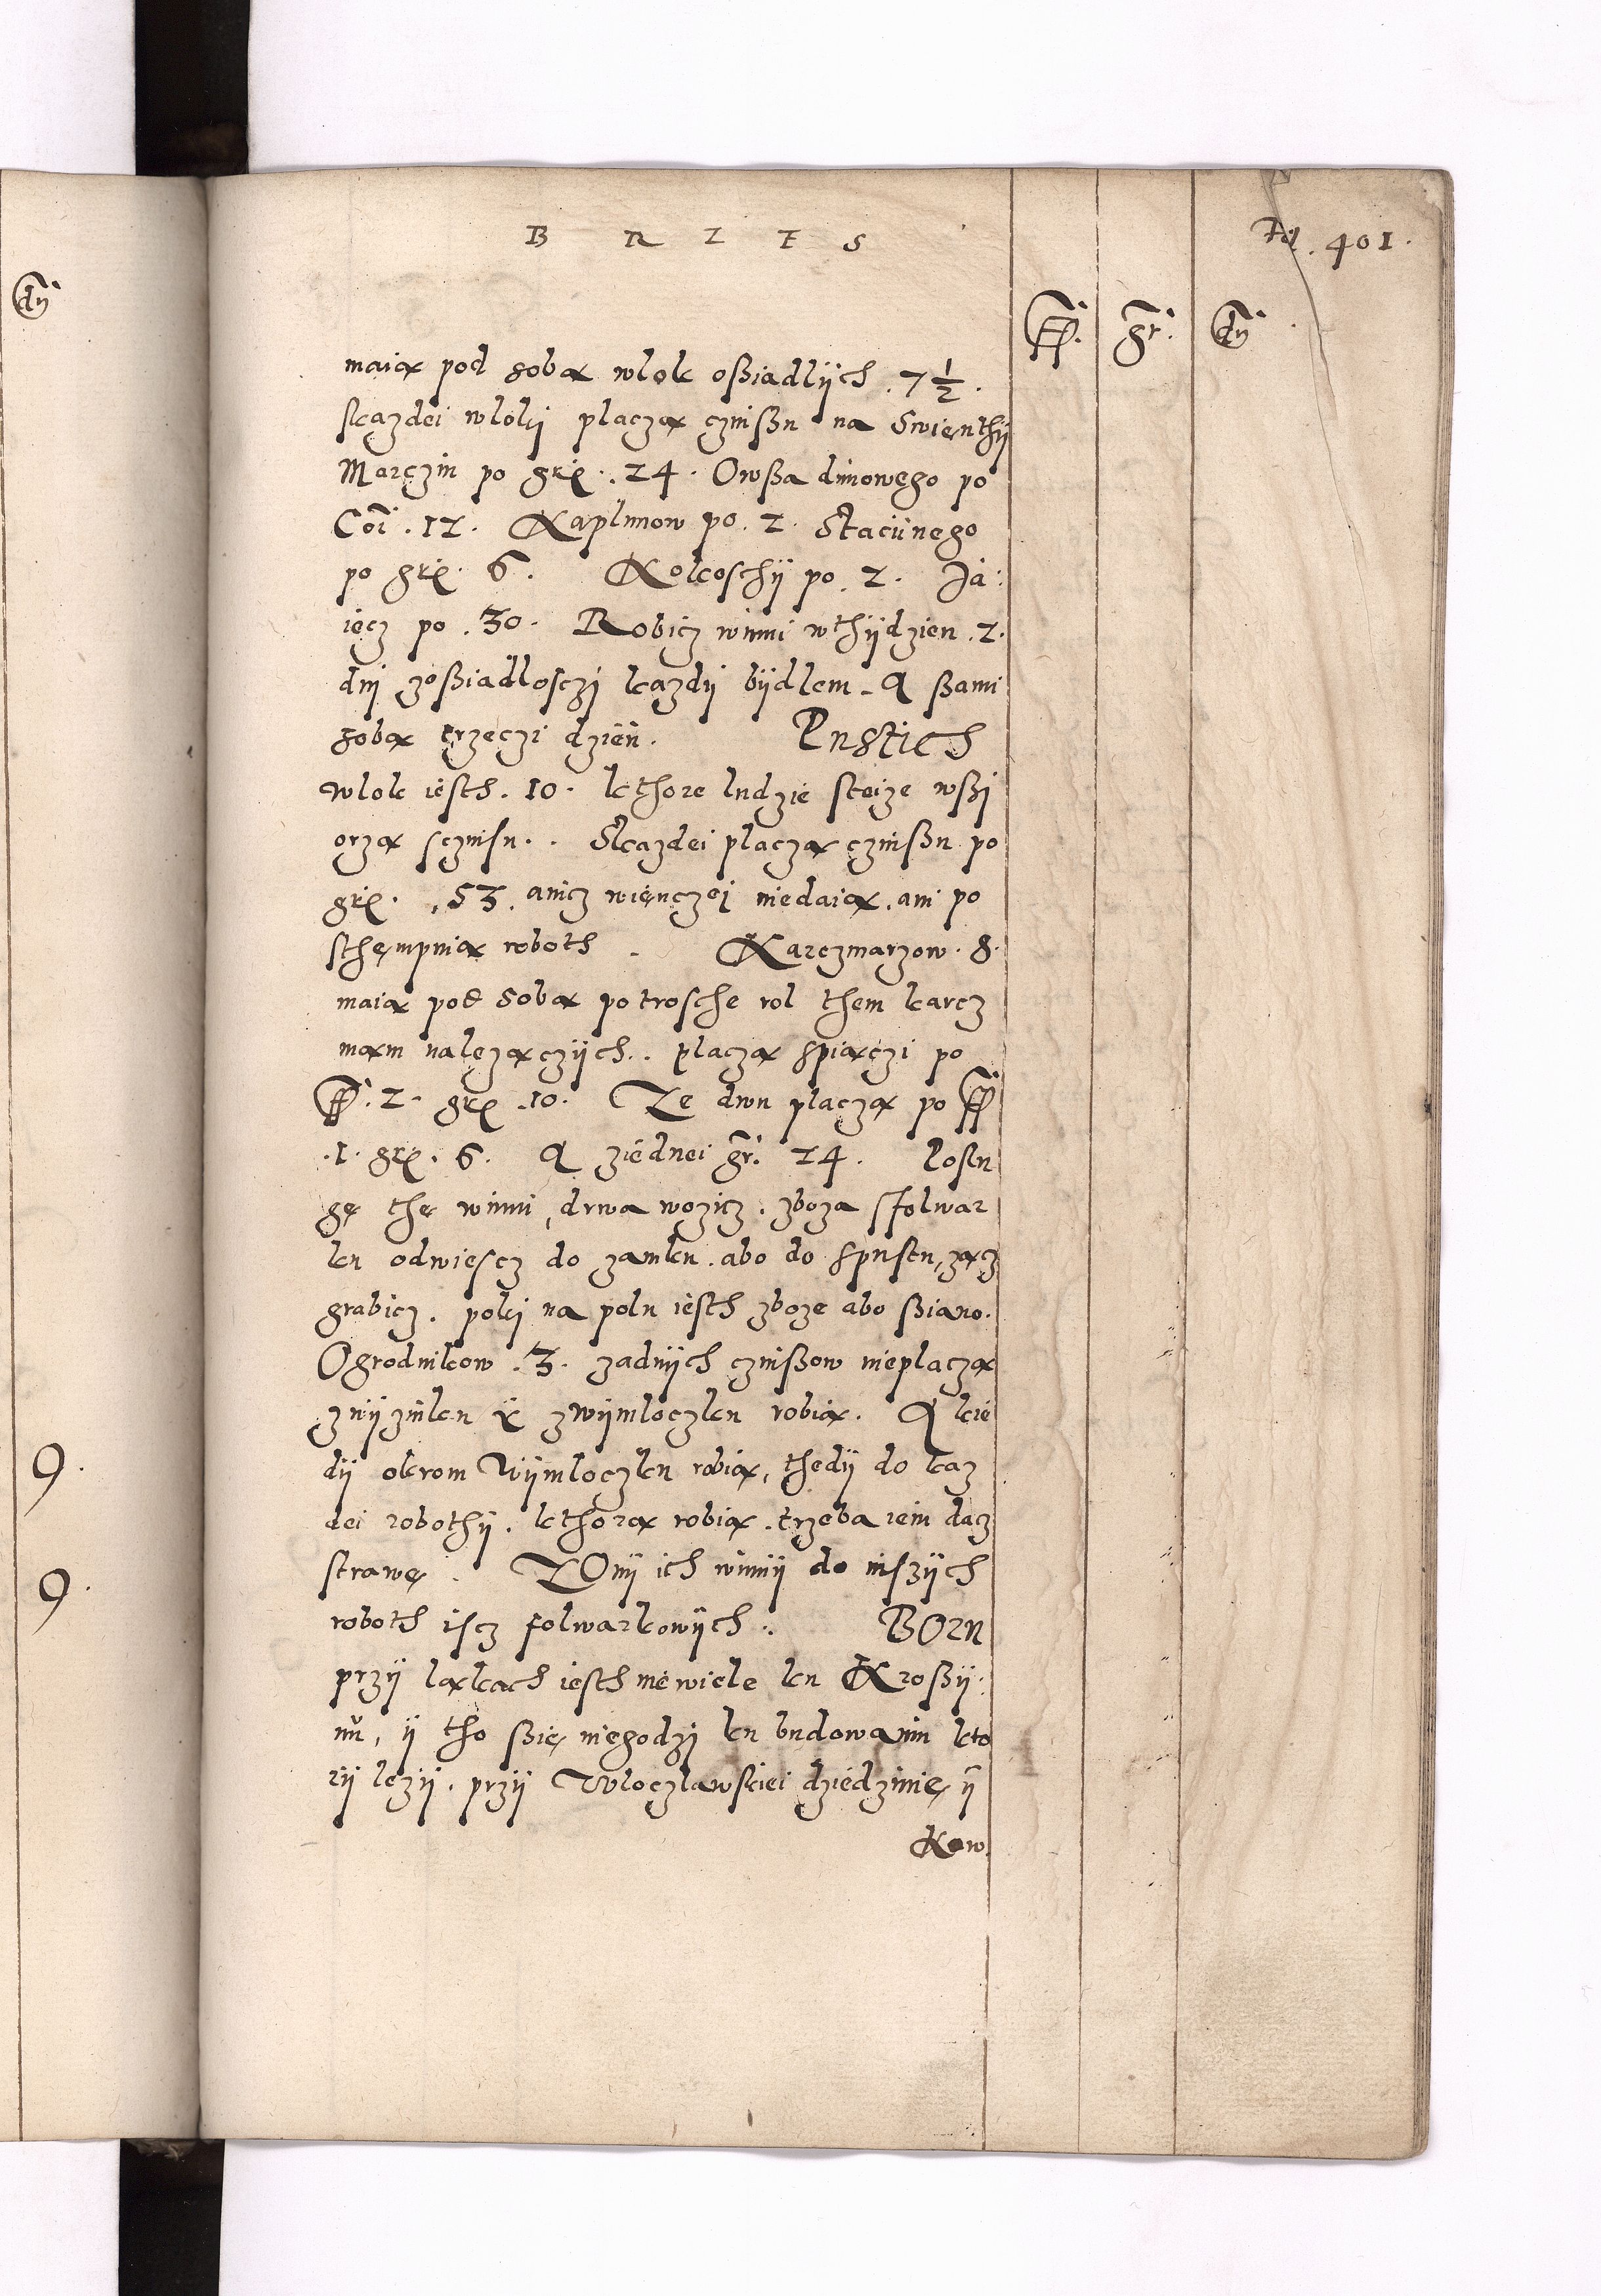 B R Z E S
Fol. 401.
ff. gr. dn
maią pod sobą wlok oßiadlÿch . 7 1/2 .
skazdei wloki placzą czinßu na Swienthÿ
Marczin po grz . 24 . Owßa dimowego po
Cori . 12 . Kaplunow po . 2 . Stacÿnego
po grz . 6 . Kokoschÿ po . 2 . Ja:
iecz po . 30 . Robicz winni wthÿdzien . 2 .
dni zoßiadlosczi kazdÿ bÿdlem . A ßami
sobą trzeczi dzien . Pustich
wlok iesth . 10 . kthore ludzie steize wßi
orzą sczinsu . . Skazdei placzą czinßu po
grz . 53 . anicz wienczei niedaią . ani po
sthempuią roboth . Karczmarzow . 8 .
maią pod sobą potrosche rol them karcz
mam nalezączÿch . . placzą spiączi po
ff . 2 . grz . 10 . Ze dwu placzą po ff
. 1 . grz . 6 . A ziednei gr. 24 . Posłu
gę thę winni, drwa wozicz . zboza sfolwar
ku odwiescz do zamku . abo do spustu, zącz
grabicz . poki na polu iesth zboze abo ßiano .
Ogrodnikow . 3 . zadnÿch czinßow nieplaczą
zwÿzinku ÿ zwÿmloczku robią . A kie
dÿ okrom Wÿmloczku robią, thedÿ do kaz
dei robothÿ . kthorą robią . trzeba iem dacz
strawę . ZOnÿ ich winnÿ do inszÿch
roboth iscz folwarkowÿch . BORu
przÿ ląkach iesth niewiele ku Kroßÿ:
nu, ÿ tho ßię niegodzi ku budowaniu kto
rÿ lezÿ . przÿ Wloczlawskiei dziedzinie, ÿ
Kow.
dn
9 .
9 .